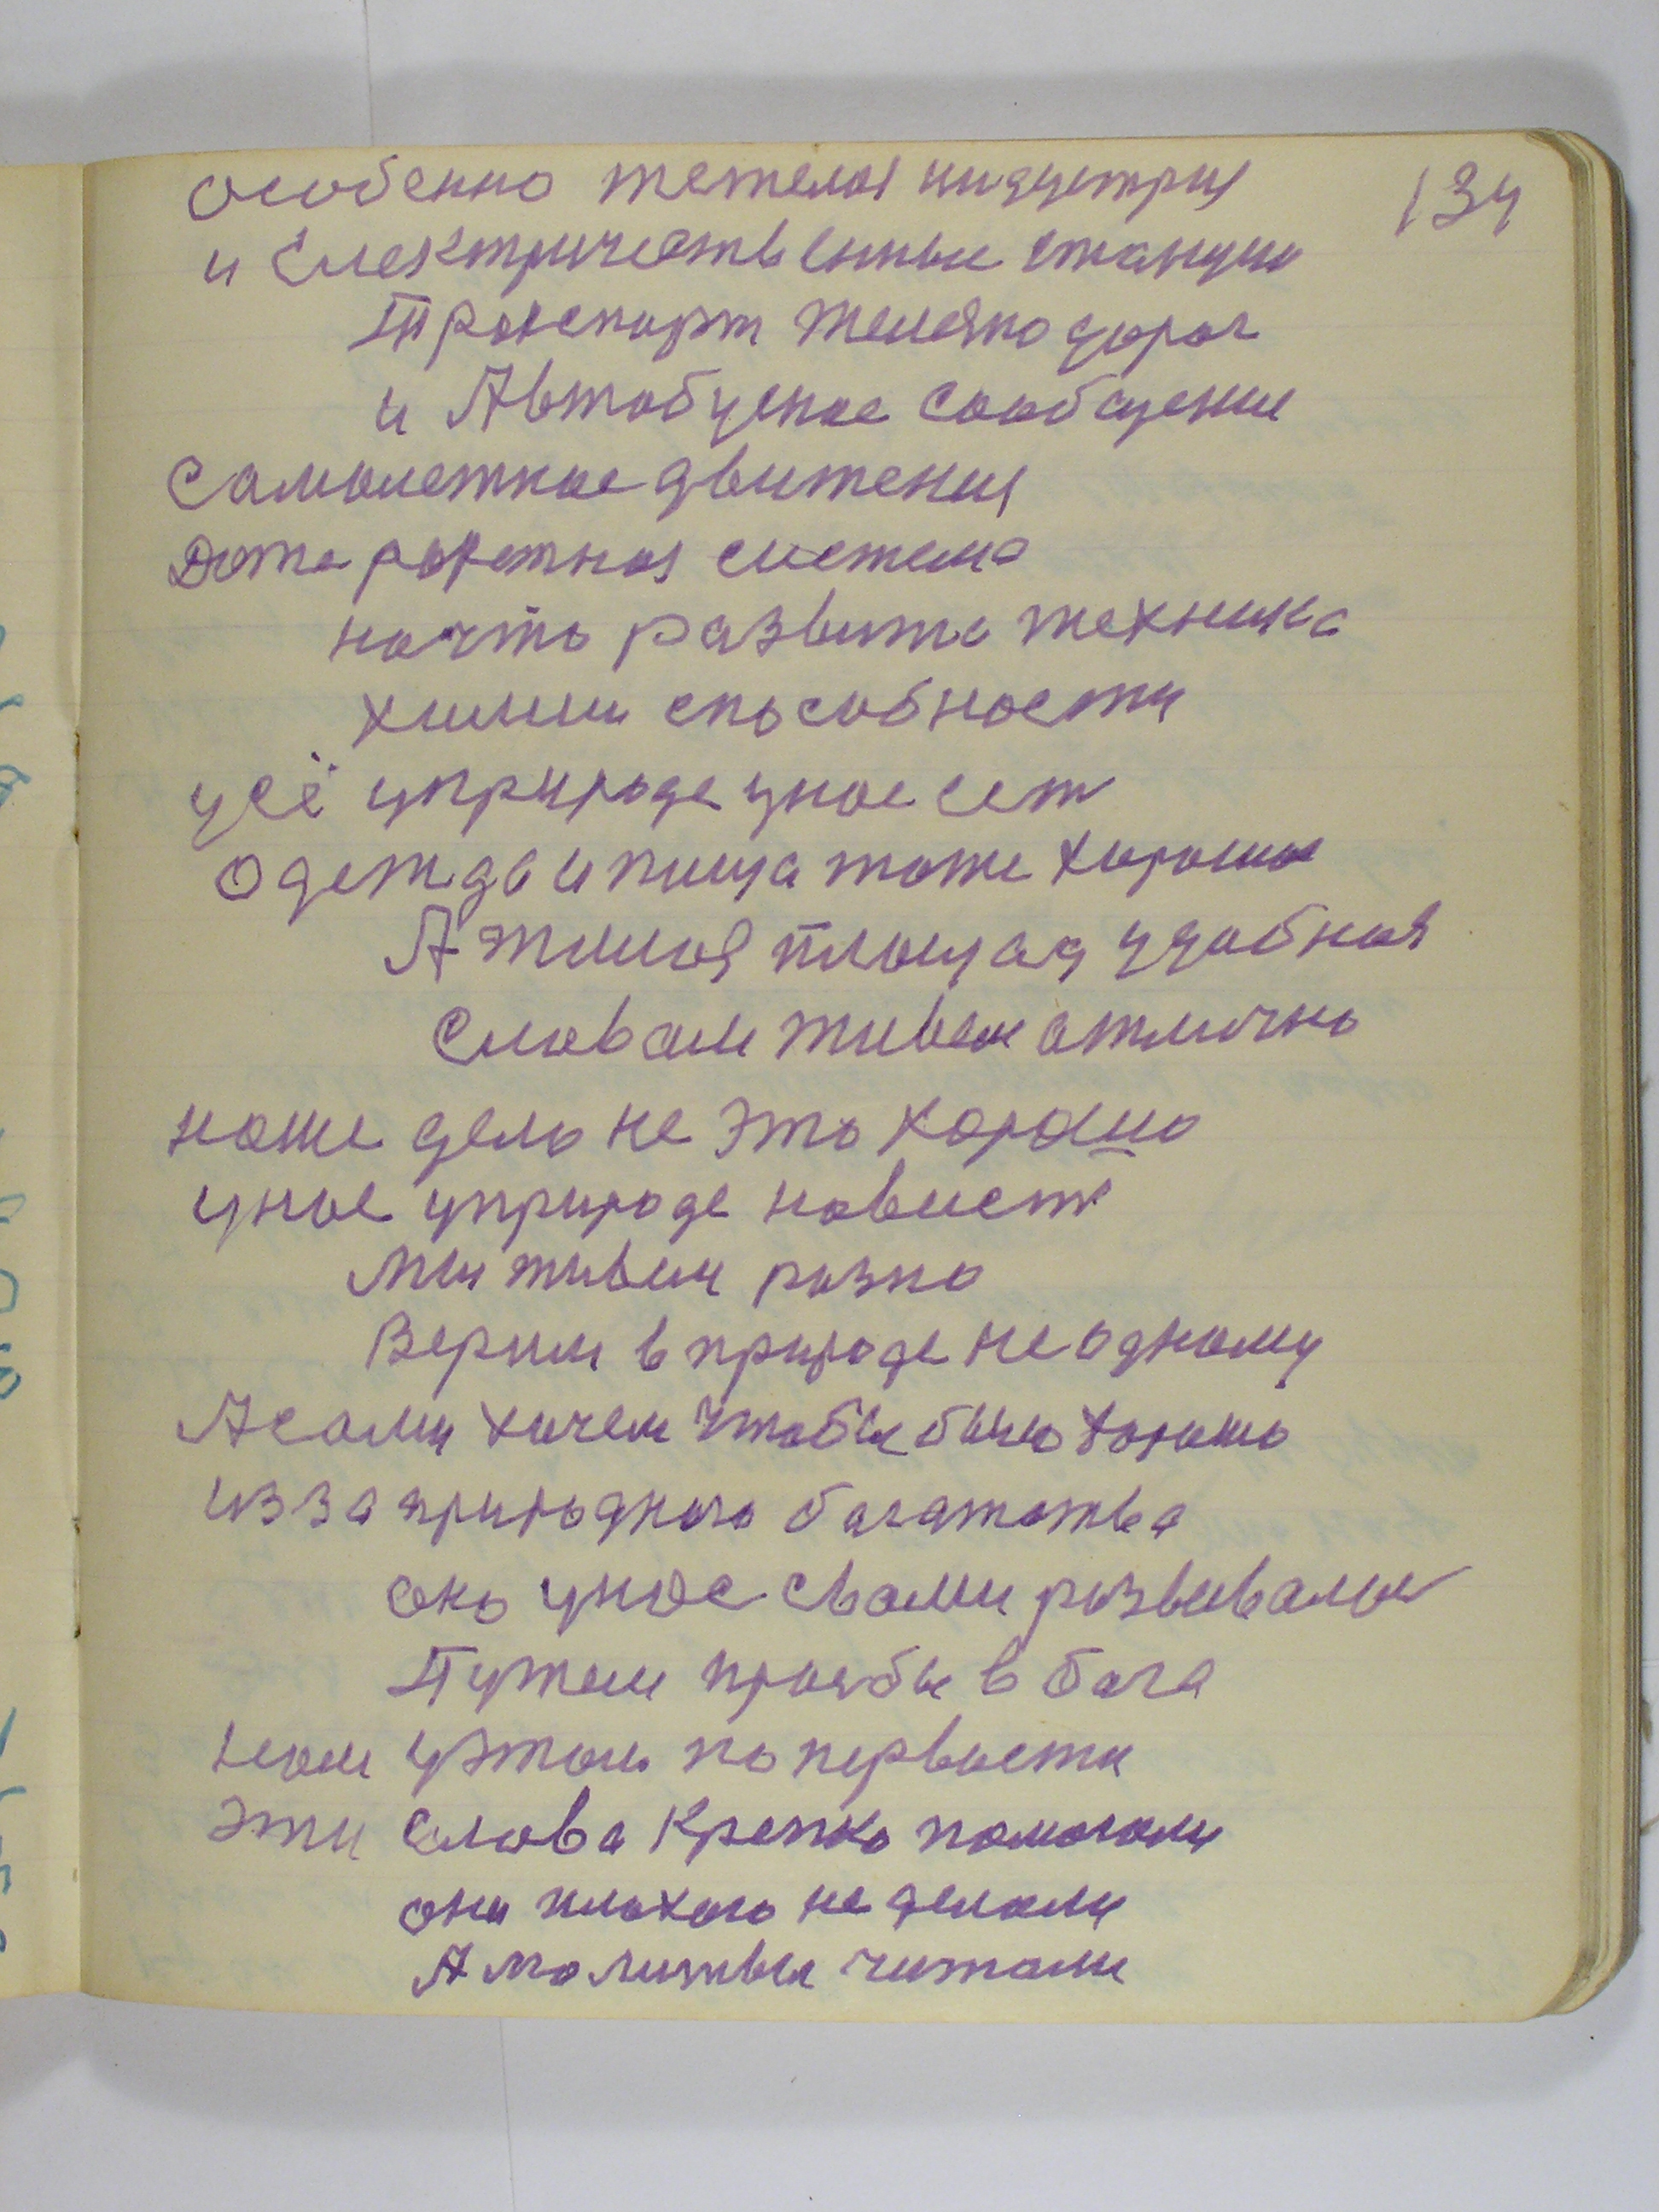 134
особенно тежелая индустрия
и Електричественые станции
Транспорт железно дорог
и Автобусное сообщение
самолетное движения
Даже ракетная система
начто развита техника
химии способности
усё уприроде унас сеть
одежда и пища тоже хороша
А жилая площад удобная
Словам живем отлично
наше дело не это хорошо
унас уприроде нависть
Мы живем разно
Верим в природе не одному
А сами хочем чтобы было хорошо
из за природного багатства
оно унас свами развивалась
Путем прозбы в бога
нам уэтом по первости
эти слова крепко помогали
они плохого не делали
А молитвы читали